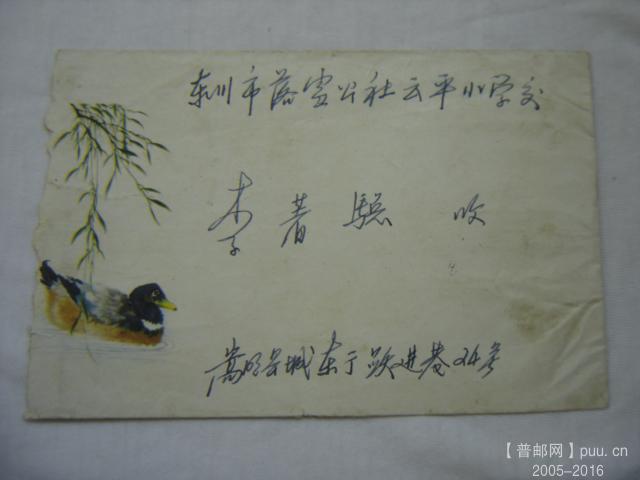 东川市落雪公社云平小学交
李著骢 收
嵩明县城东门跃进巷24号
【普邮网】puu.cn
2005-2016